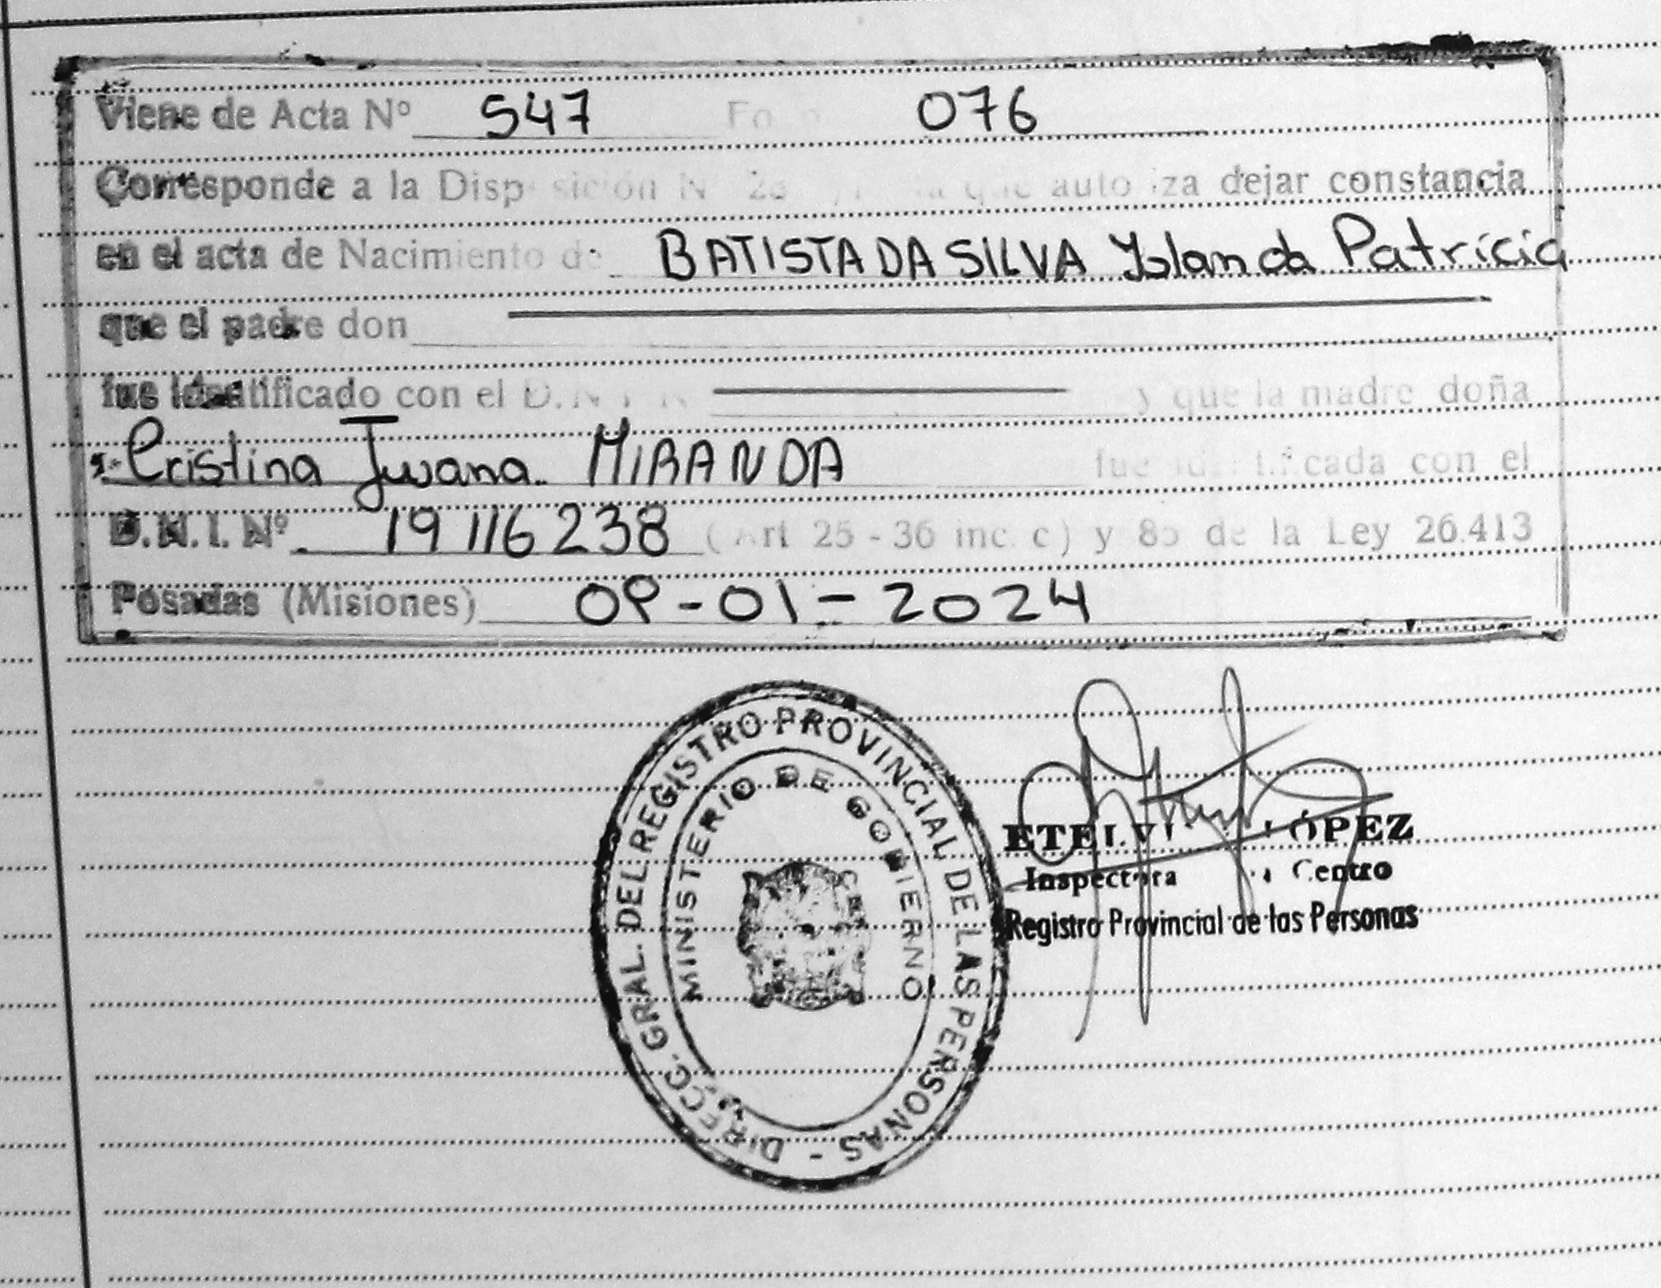 Viene de Acta Nº 547 Fo 076
Corresponde a la Disposición N que autoriza dejar constancia
en el acta de Nacimiento de BATISTA DA SILVA Yolanda Patricia
que el padre don
fue identificado con el D.N.I. N y que la madre doña
Cristina Juana MIRANDA fue identificada con el
D.N.I. Nº 19 116 238 (Art 25 - 36 inc. c) y 85 de la Ley 26.413
Posadas (Misiones) 09-01-2024
DIRECC. GRAL. DEL REGISTRO PROVINCIAL DE LAS PERSONAS -
MINISTERIO DE GOBIERNO
LÓPEZ
Inspectora Centro
Registro Provincial de las Personas